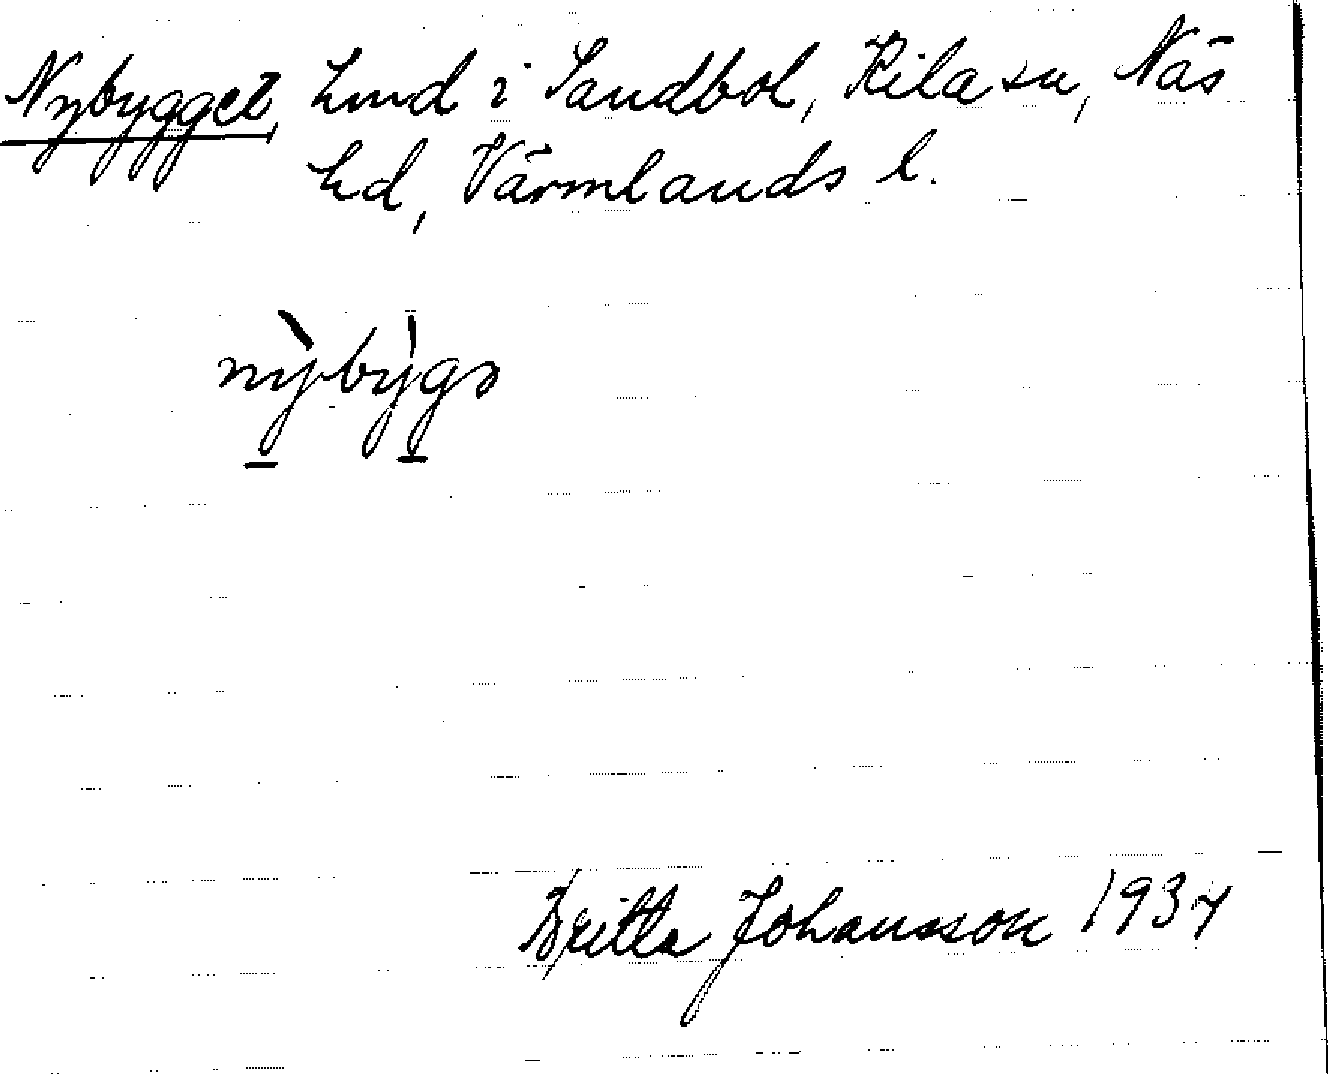 Nybygget, hmd i Sandbol, Kila sn, Näs
hd, Värmlands l.
nỳby̍gə
Britta Johansson 1934